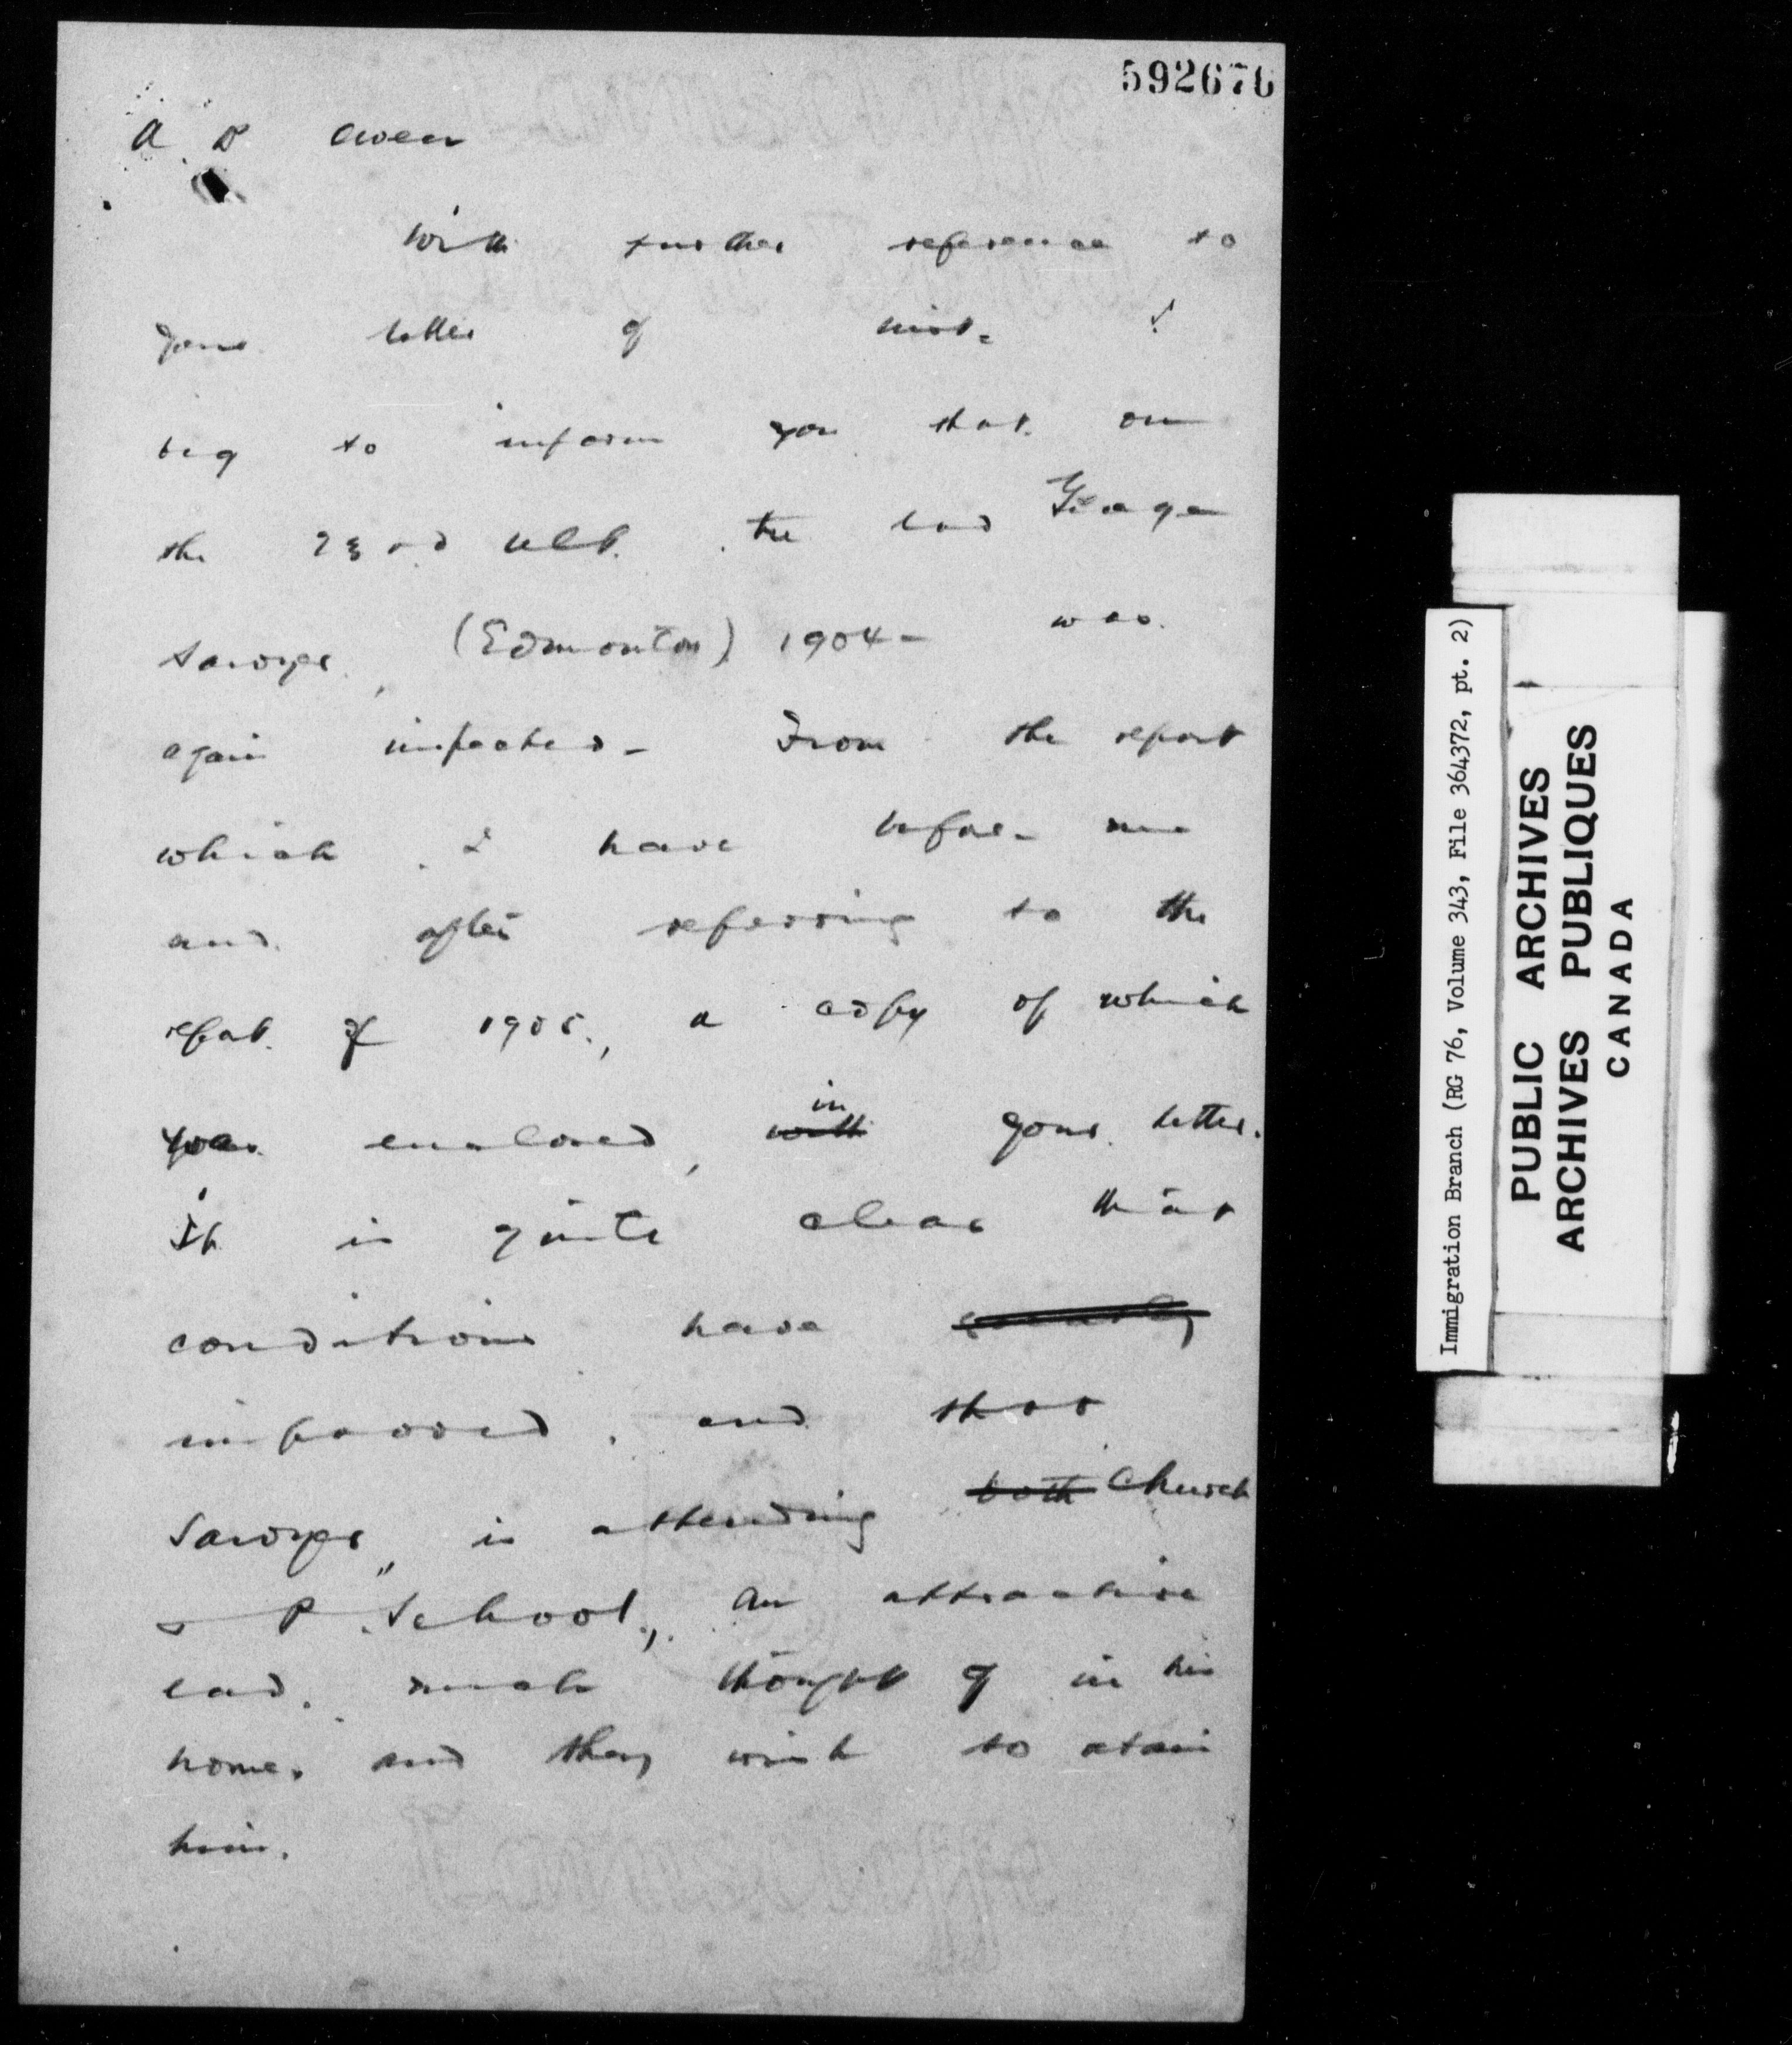 592676
A B Owen
With further reference to
your letter of inst. I
beg to inform you that on
the 23rd ult. the lad George
Sawyer, (Edmonton) 1904- was
again inspected - From the report
which I have before me
and after referring to the
report of 1905, a copy of which
was enclosed, with in your letter.
It is quite clear that
conditions have
improved, and that
Sawyer, is attending both Church
& School, an attractive
lad, much thought of in his
home, and they wish to retain
him.
Immigration Branch (RG 76, Volume 343, File 364372, pt. 2)
PUBLIC ARCHIVES
ARCHIVES PUBLIQUES
CANADA